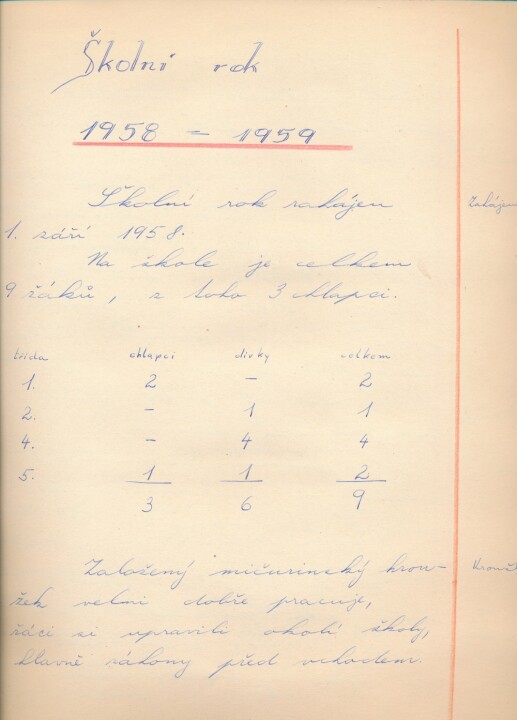 Školní rok
1958 – 1959
Školní rok zahájen
1. září 1958.
Na škole je celkem
9 žáků, z toho 3 chlapci.
třída chlapci dívky celkem
1. 2 – 2
2. – 1 1
4. – 4 4
5. 1 1 2
3 6 9
Založený mičurinský krou-
žek velmi dobře pracuje,
žáci si upravili okolí školy,
hlavně záhony před vchodem.
Zaháje
Krouž